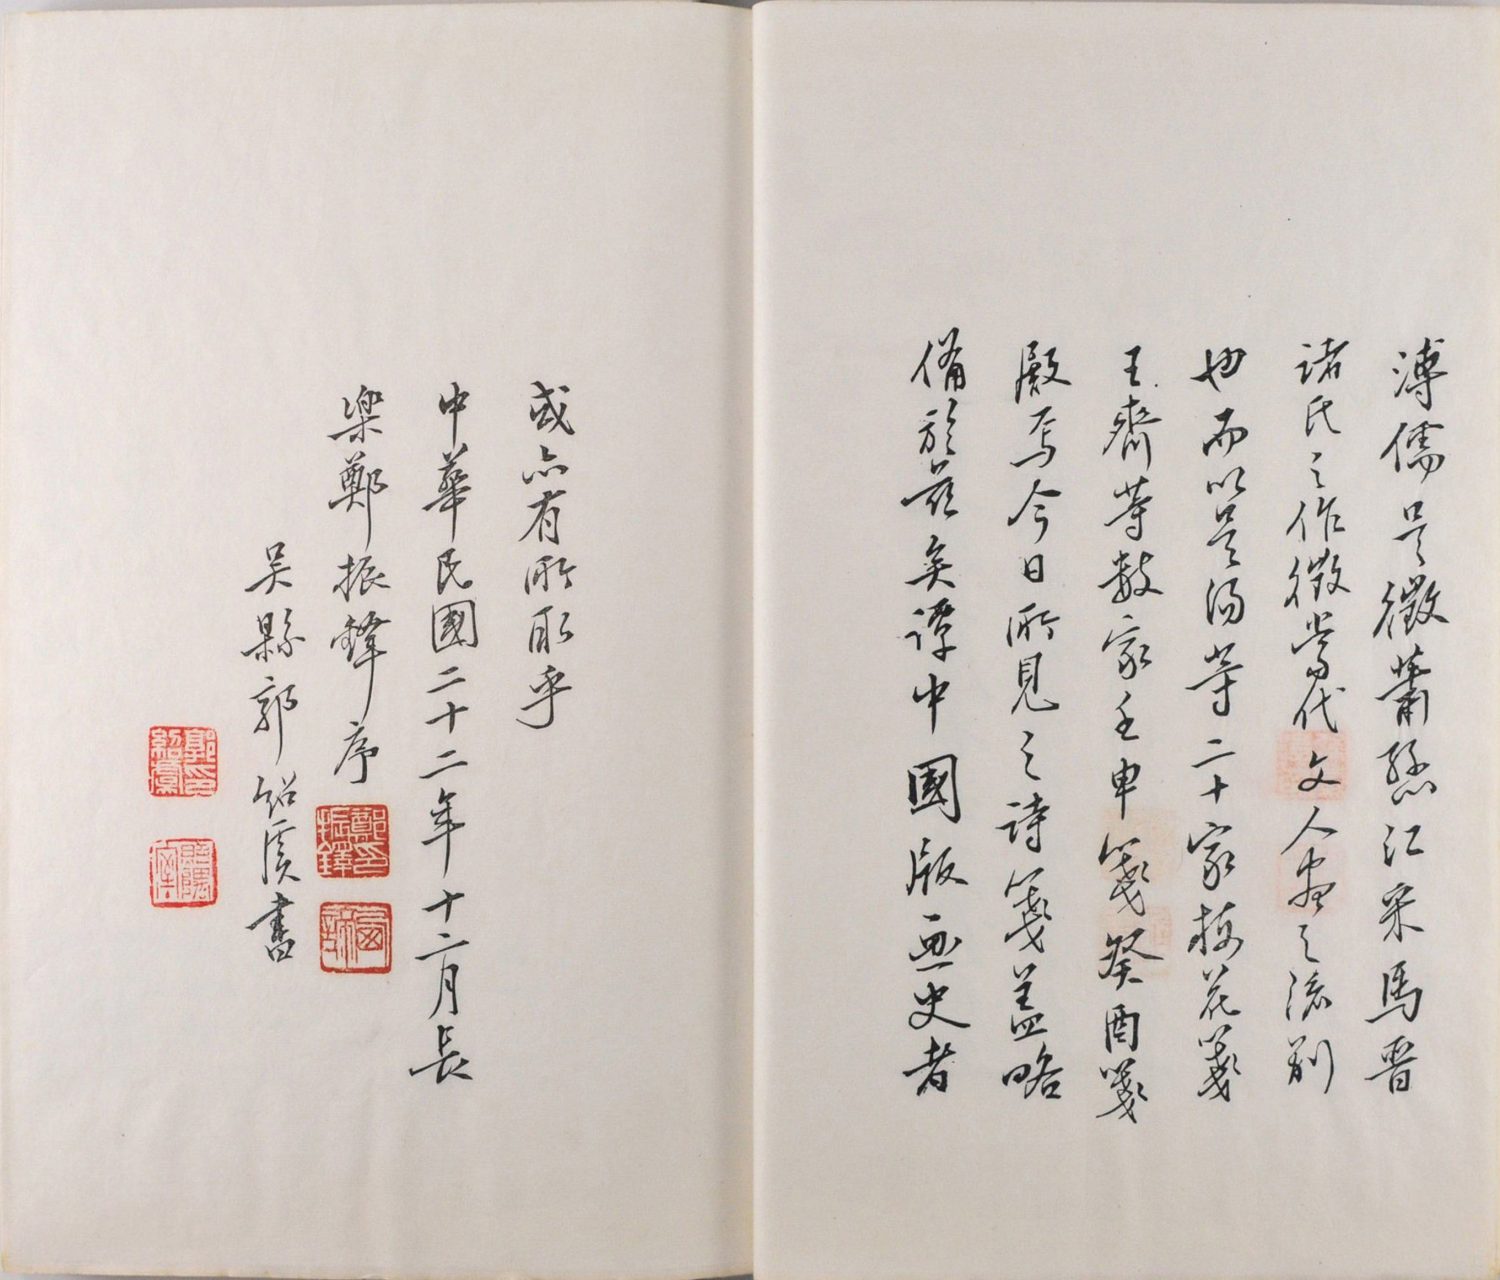 溥儒吳徵蕭愻江采馬晉
諸氏之作徵當代文人畫之流别
也而以吳湯等二十家梅花箋
王齊等數家壬申箋癸酉箋
殿焉今日所見之詩箋蓋略
備於茲矣譚中國版畫史者
或亦有所取乎
中華民國二十二年十二月長
樂鄭振鐸序
鄭印振鐸
西諦
吳縣郭紹虞書
郭印紹虞
照隅室